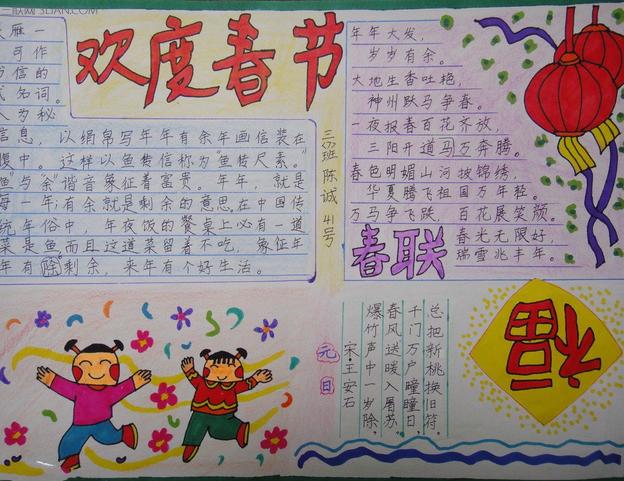 3LIAN.COM
雁一
可作
书信的
代名词。
人为秘
信息，以绢帛写年年有余年画信装在
腹中。这样以鱼传信称为"鱼传尺素。"
鱼"与"余"谐音象征着富贵。年年，就是
每一年;有余就是剩余的意思.在中国传
统年俗中，年夜饭的餐桌上必有一道
菜是鱼.而且这道菜留着不吃，象征年
年有除剩余，来年有个好生活。
欢度春节
三班陈诚41号
年年大发，
岁岁有余。
大地生香吐艳，
神州跃马争春。
一夜报春百花齐放，
三阳开道马万奔腾。
春色明媚山河披锦绣，
华夏腾飞祖国万年轻。
万马争飞跃，百花展笑颜。
春光无限好，
瑞雪兆丰年。
春联
元日
宋:王安石
爆竹声中一岁除，
春风送暖入屠苏，
千门万户瞳瞳日，
总把新桃换旧符。
福